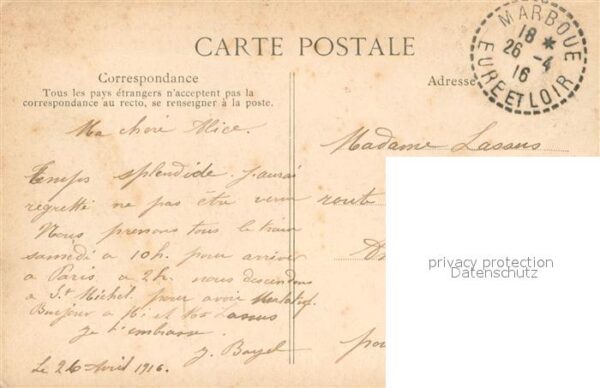 CARTE POSTALE
Correspondance
Tous les pays étrangers n'acceptent pas la
correspondance au recto, se renseigner à la poste.
Adresse
MARBOUE
18 *
26 - 4
16
EURE ET LOIR
Ma chère Alice.
Temps splendide. J'aurai
regretté ne pas être venu
Nous prenons tous le train
samedi à 10h. pour arriver
à Paris à 2h. nous descendons
à St Michel. pour avoir
Bonjour à Mr et Me Lassus
je t'embrasse.
J. Bayel
Le 26 Avril 1916.
Madame Lassus
route
privacy protection
Datenschutz